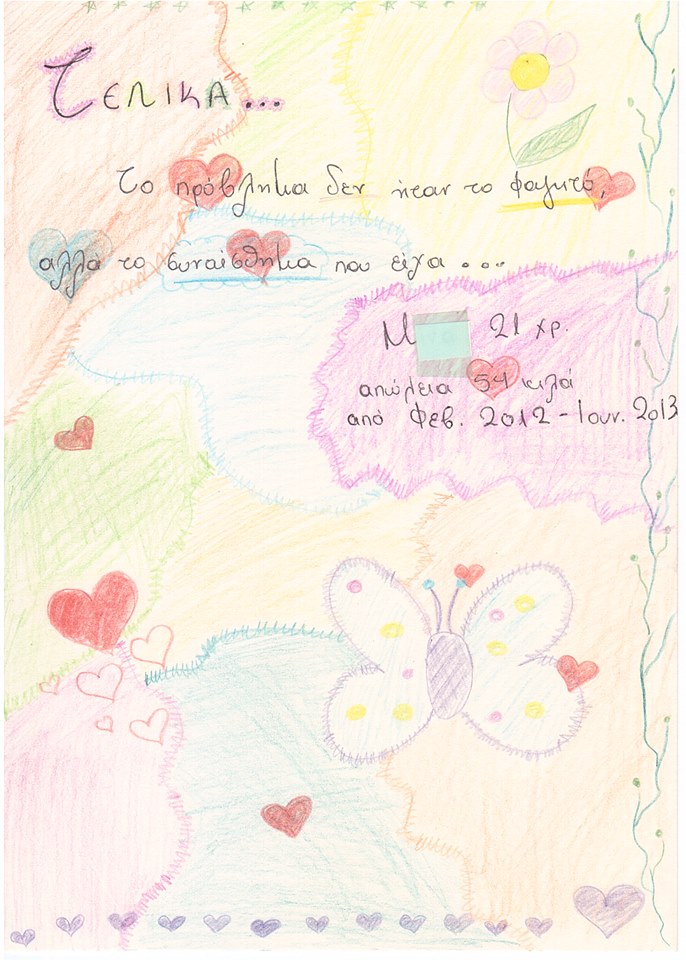 Τελικά...
Το πρόβλημα δεν ήταν το φαγητό,
αλλά το συναίσθημα που είχα...
Μ 21 χρ.
απώλεια 54 κιλά
από Φεβ. 2012 - Ιουν. 2013